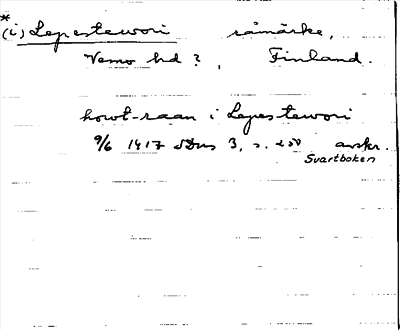 *
(i) Lepestewori råmärke,
Vemo hd ? , Finland.
howt-raan i Lepestewori
9/6 1417 SDns 3, s. 250 avskr.
Svartboken